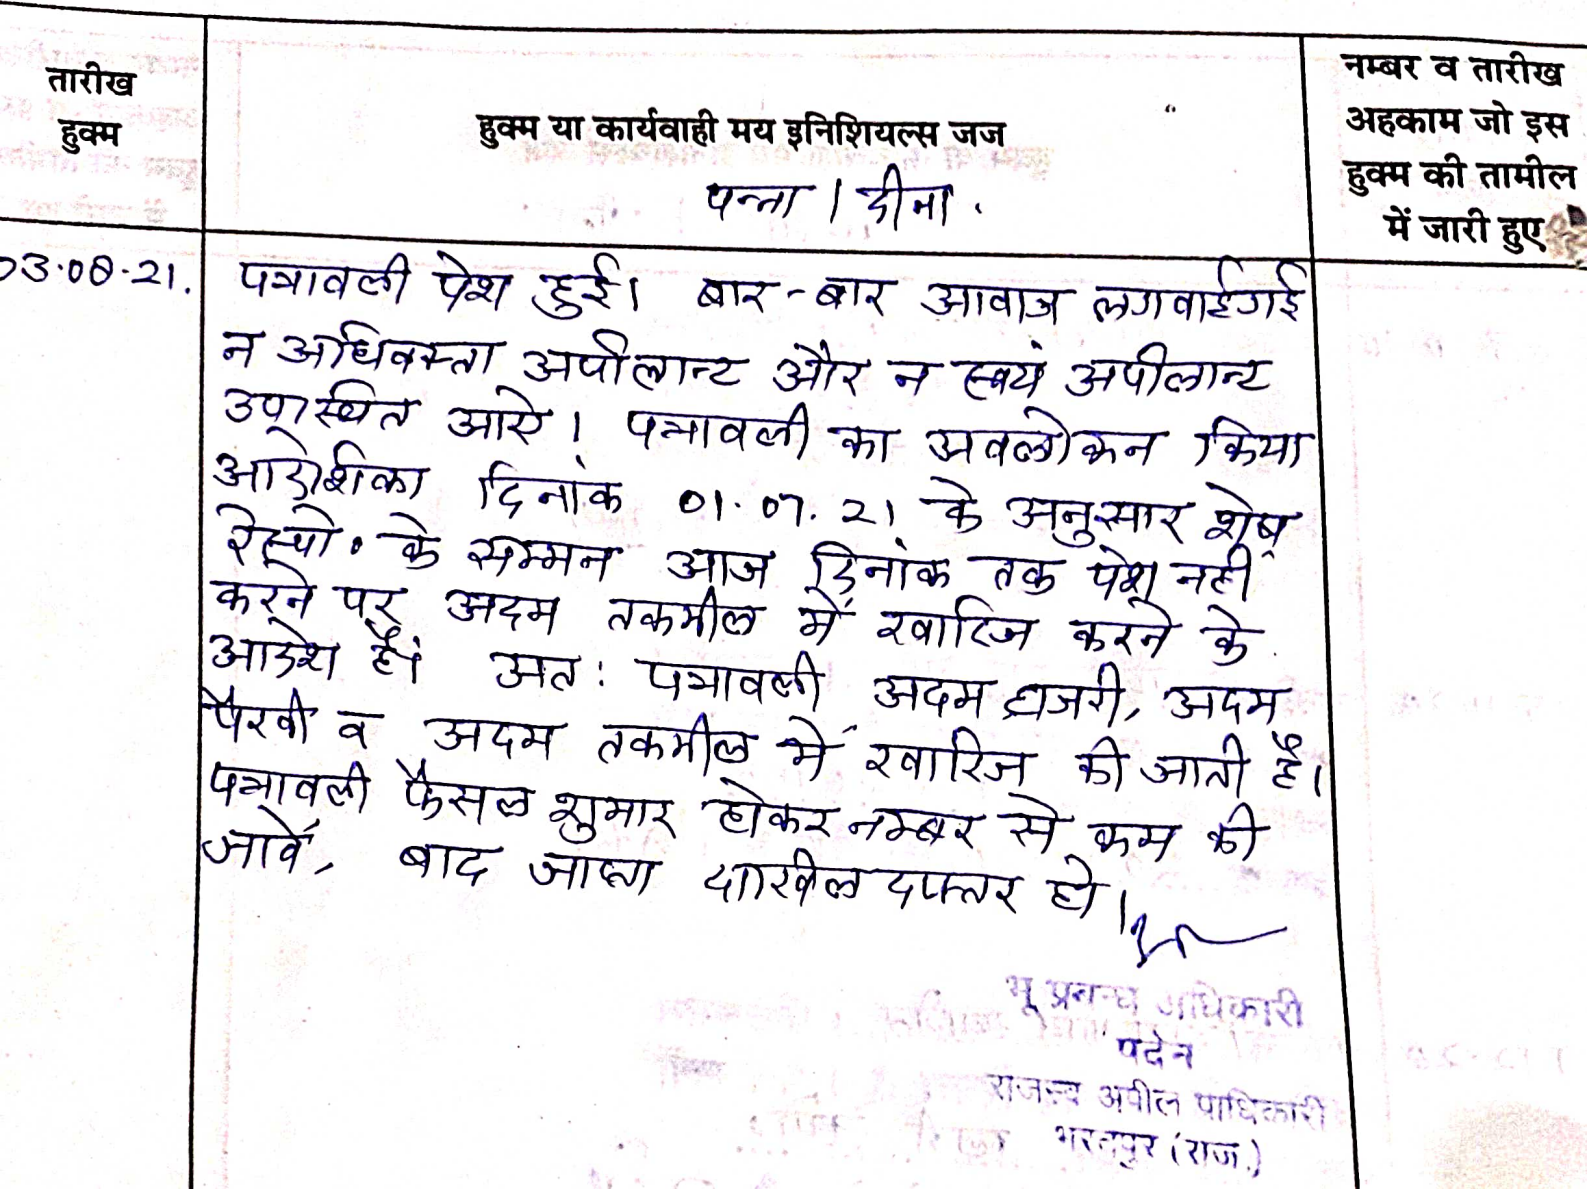 तारीख
हुक्म
हुक्म या कार्यवाही मय इनिशियल्स जज
नम्बर व तारीख
अहकाम जो इस
हुक्म की तामील
में जारी हुए
पन्ना / दीना
03.08.21. पत्रावली पेश हुई। बार-बार आवाज लगवाई गई
न अधिवक्ता अपीलान्ट और न स्वयं अपीलान्ट
उपस्थित आये। पत्रावली का अवलोकन किया
आदेशिका दिनांक 01.07.21 के अनुसार शेष
रेस्पो. के सम्मन आज दिनांक तक पेश नहीं
करने पर अदम तकमील में खारिज करने के
आदेश है। अतः पत्रावली अदम हाजरी, अदम
पैरवी व अदम तकमील में खारिज की जाती है।
पत्रावली फैसल शुमार होकर नम्बर से कम की
जावें, बाद जाप्ता दाखिल दफ्तर हो।
भू प्रबन्ध अधिकारी
पदेन
राजस्व अपील प्राधिकारी
भरतपुर (राज.)